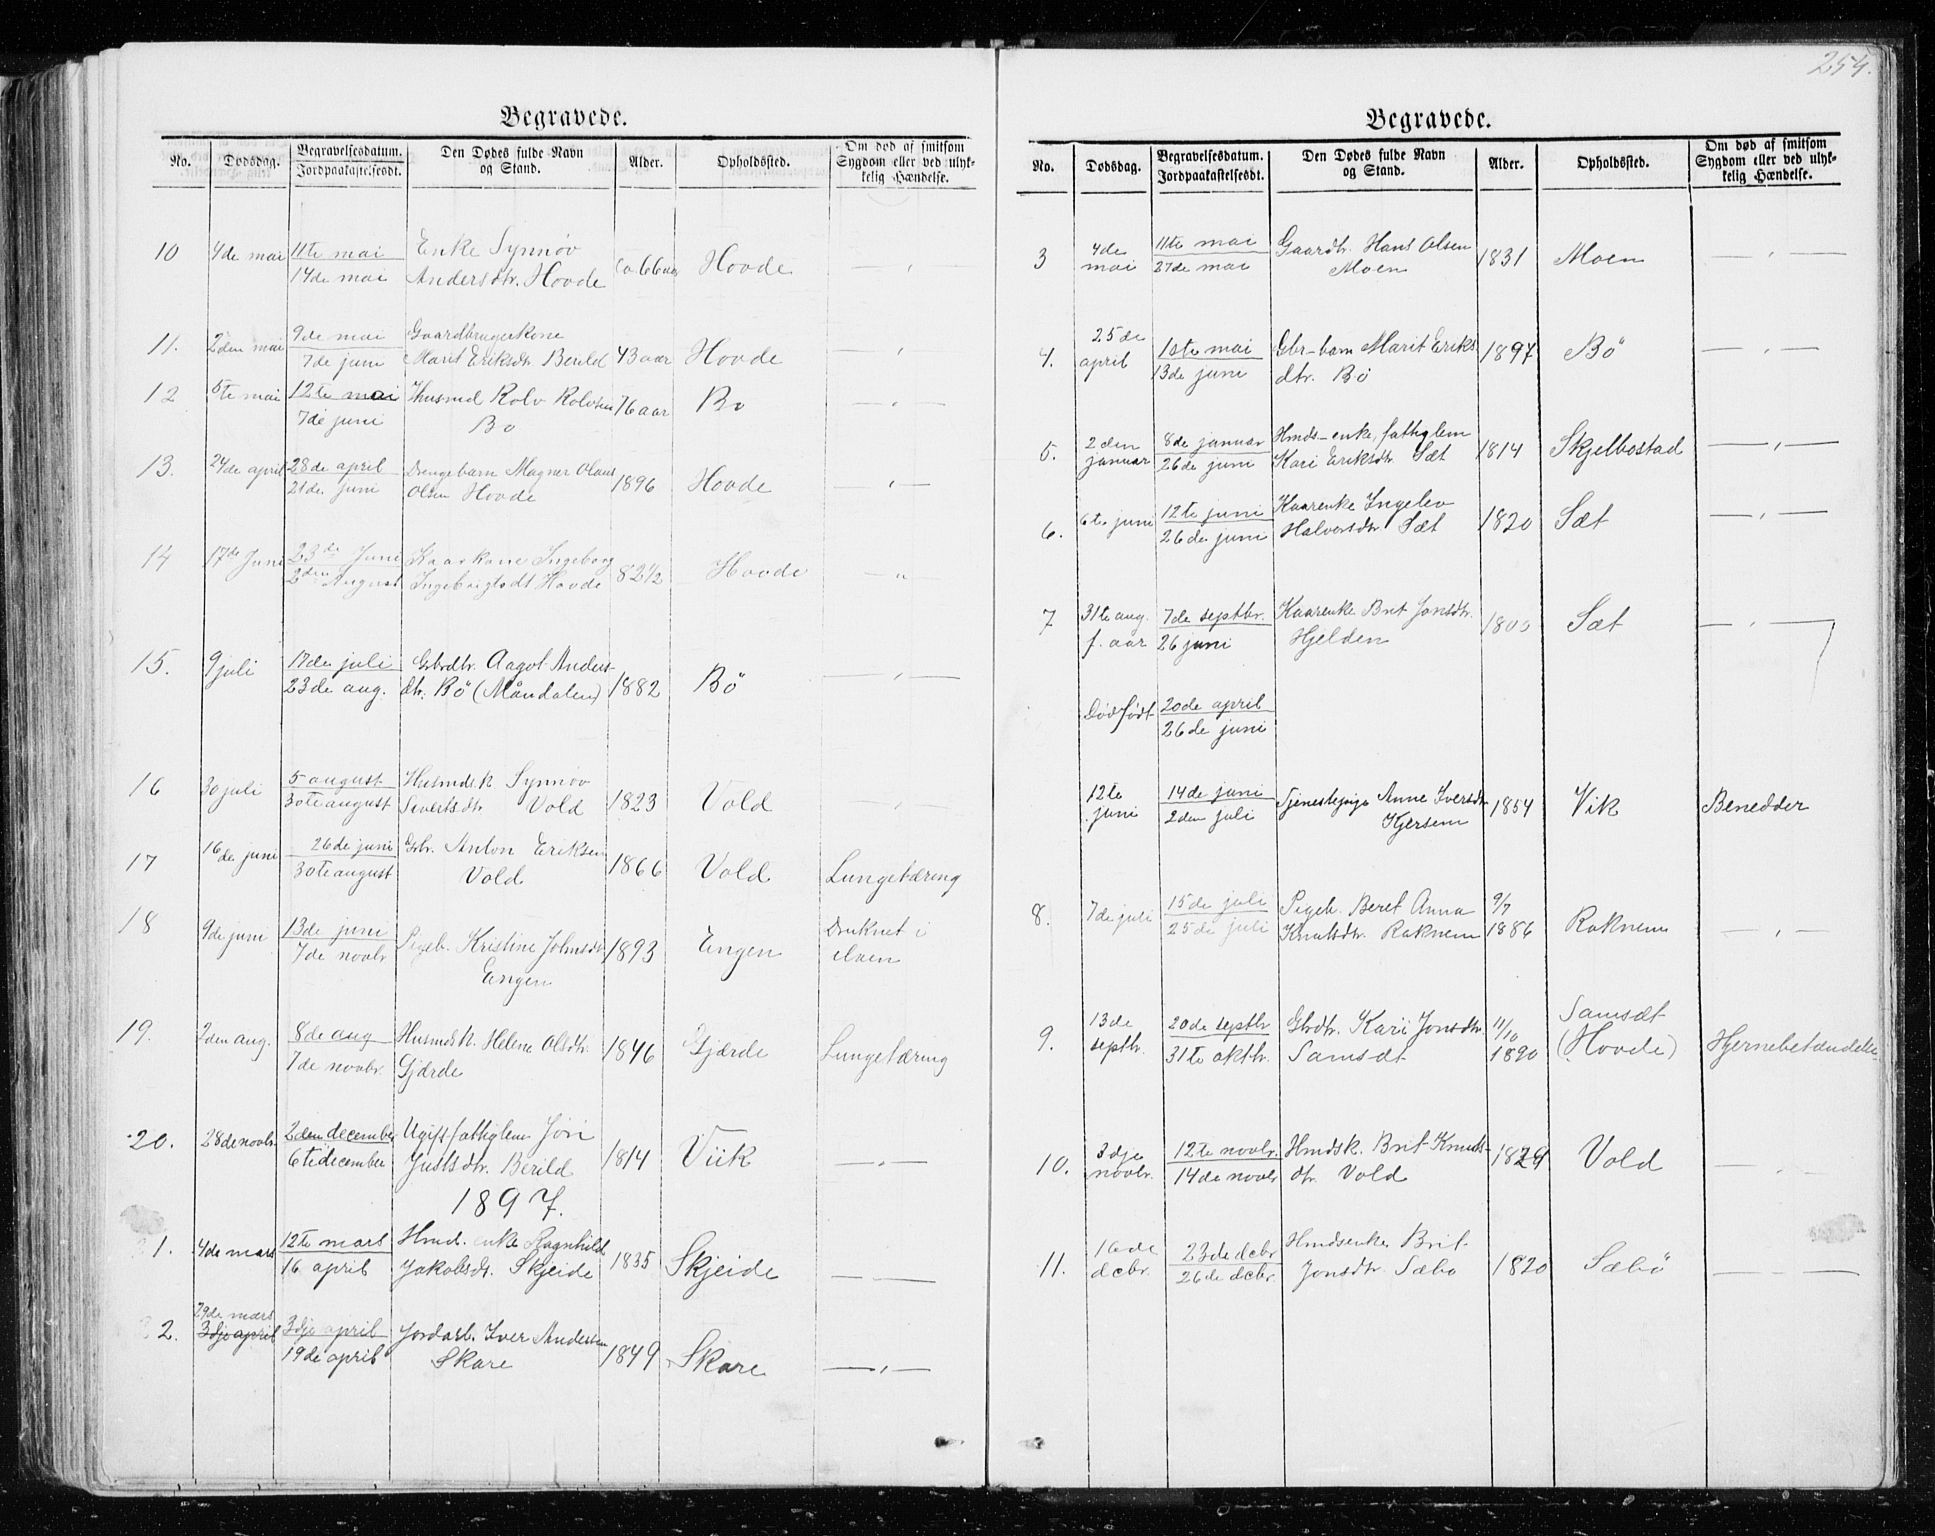 254.
Begravede.
No. Dødsdag. Begravelsesdatum. Jordpaakastelsesdt. Den Dødes fulde Navn og Stand. Alder. Opholdssted. Om død af smitsom Sygdom eller ved ulykkelig Hændelse.
10 4de mai 11te mai Enke Synnøv Ca 66 aar Hovde — „ —
14de mai Andersdtr. Hovde
11. 2den mai 9de mai Gaardbrugerkone
7de juni Marit Eriksdtr Berild 43 aar Hovde — „ —
12 5te mai 12te mai Husmd Rolv Rolvsen 76 aar Bø — „ —
7de juni Bø
13. 24de april 28de april Drengebarn Magner Olaus
21de juni Olsen Hovde 1896 Hovde — „ —
14 17de Juni 23de Juni Kaarkone Ingeborg
2den August Ingebrigtsdt Hovde 82½ Hovde — „
15. 9 juli 17de juli Gbrdtr. Aagot Anders-
23de aug. dtr. Bö (Måndalen) 1882 Bö — „ —
16 30 juli 5 august Husmdsk Synnøv
30te august Sivertsdtr Vold 1823 Vold — „ —
17 16de juni 26de juni Gbr. Anton Eriksen
30te august Vold 1866 Vold Lungetæring
18 9de juni 13de juni Pigeb. Kristine Johnsdtr 1893 Engen Druknet i
7de novbr Engen elven
19. 2den aug. 8de aug Husmdsk. Helene Olsdtr. 1846 Gjærde Lungetæring
7de novbr. Gjærde
20. 28de novbr. 2den december Ugift fattiglem Jöri
6te december Justsdtr. Berild 1814 Viik — „ —
1897.
1. 4de mars 12te mars Hmd. enke Ragnhild
16 april Jakobsdt. Skjeide 1835 Skjeide — —
29de mars
2. 3dje april 3dje april Jordarb. Iver Andersen
19de april Skare 1849 Skare — „ —
Begravede.
No. Dødsdag. Begravelsesdatum. Jordpaakastelsesdt. Den Dødes fulde Navn og Stand. Alder. Opholdssted. Om død af smitsom Sygdom eller ved ulykkelig Hændelse.
3 4de mai 11te mai Gaardbr. Hans Olsen 1831 Moen — „ —
27de mai Moen
4. 25de april 1ste mai Gbr-barn Marit Eriks 1897 Bö — „ —
13de juni dtr. Bö
5. 2den januar 8de januar Hmds-enke, fattiglem
26de juni Kari Eriksdtr. Sæt 1814 Skjelbostad — „ —
6. 6te juni 12te juni Kaarenke Ingelev
26de juni Halvorsdtr Sæt 1820 Sæt — „ —
7 31te aug. 7de septbr. Kaarenke Brit Jonsdtr. Sæt — „ —
f. aar 26 juni Hjelden
Dödfödt 20de april
26de juni
12te juni 14de juni Tjenestepige Anne Iversdtr 1854 Vik Benedder
2den juli Kjersem
8. 7de juli 15de juli Pigeb. Beret Anna 9/7
25de juli Knutsdtr. Raknem 1886 Raknem — „ —
9. 13de septbr. 20de septbr Gbrdtr. Kari Jonsdtr. 11/10 Samsæt
31te oktbr. Samsæt 1890 (Hovde) Hjernebetændelse
10. 3dje novbr. 12te novbr. Hmdsk. Brit Knuts- 1829 Vold — „ —
14de novbr dtr. Vold
11. 16de dcbr. 23de dcbr Hmdsenke Brit
26de dcbr. Jonsdtr Sæbø 1820 Sæbö — — —